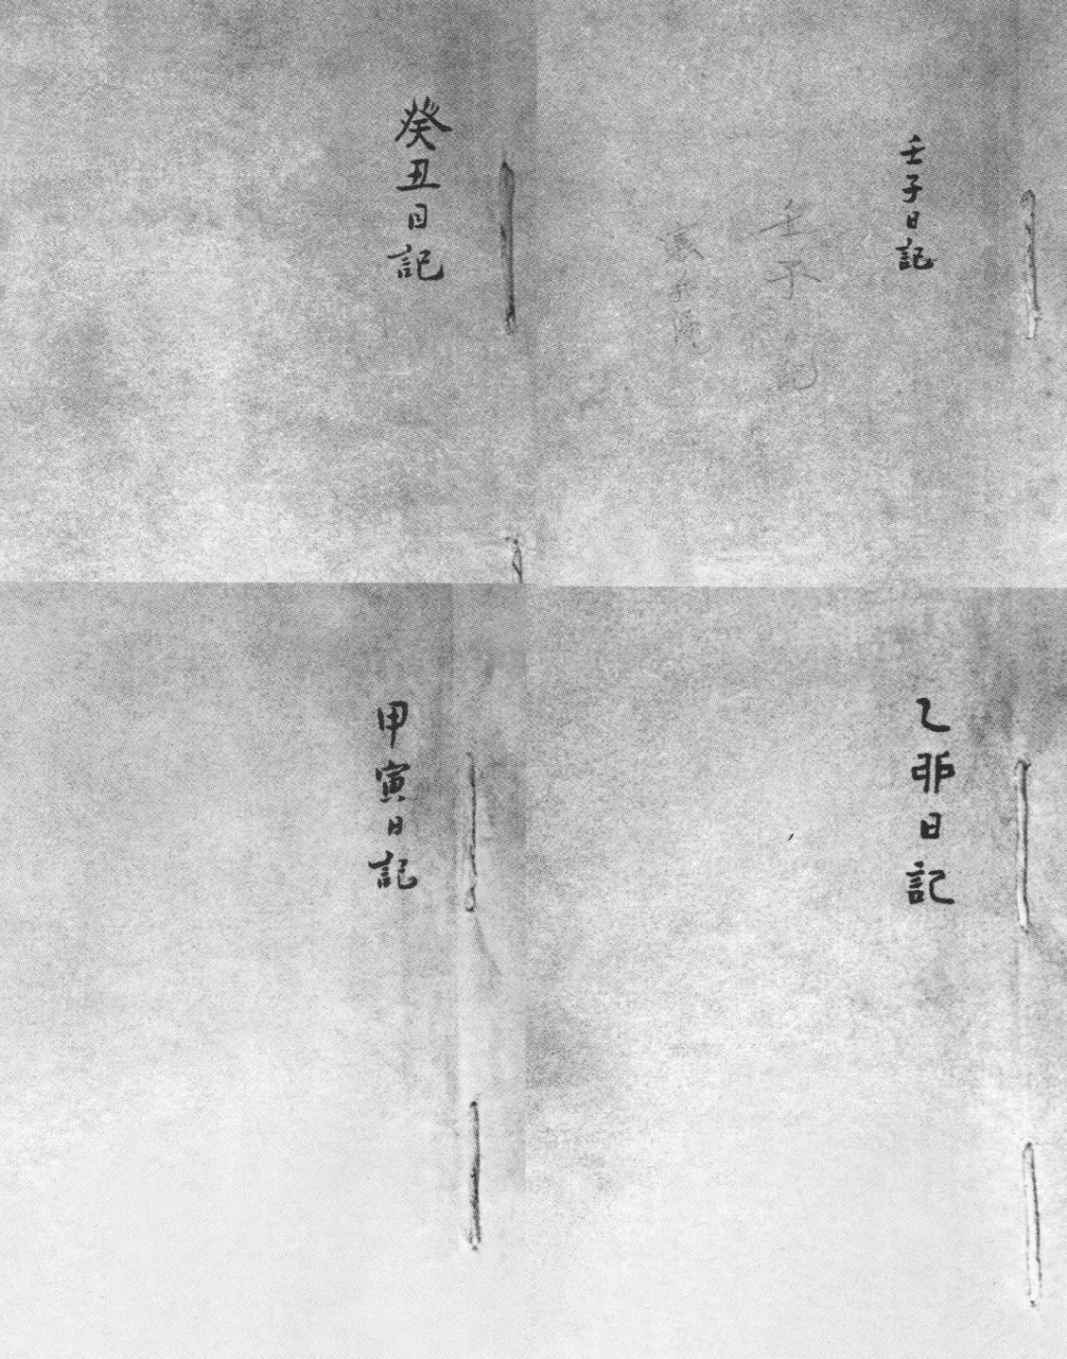 壬子日記
壬子日記
癸丑日記
乙卯日記
甲寅日記